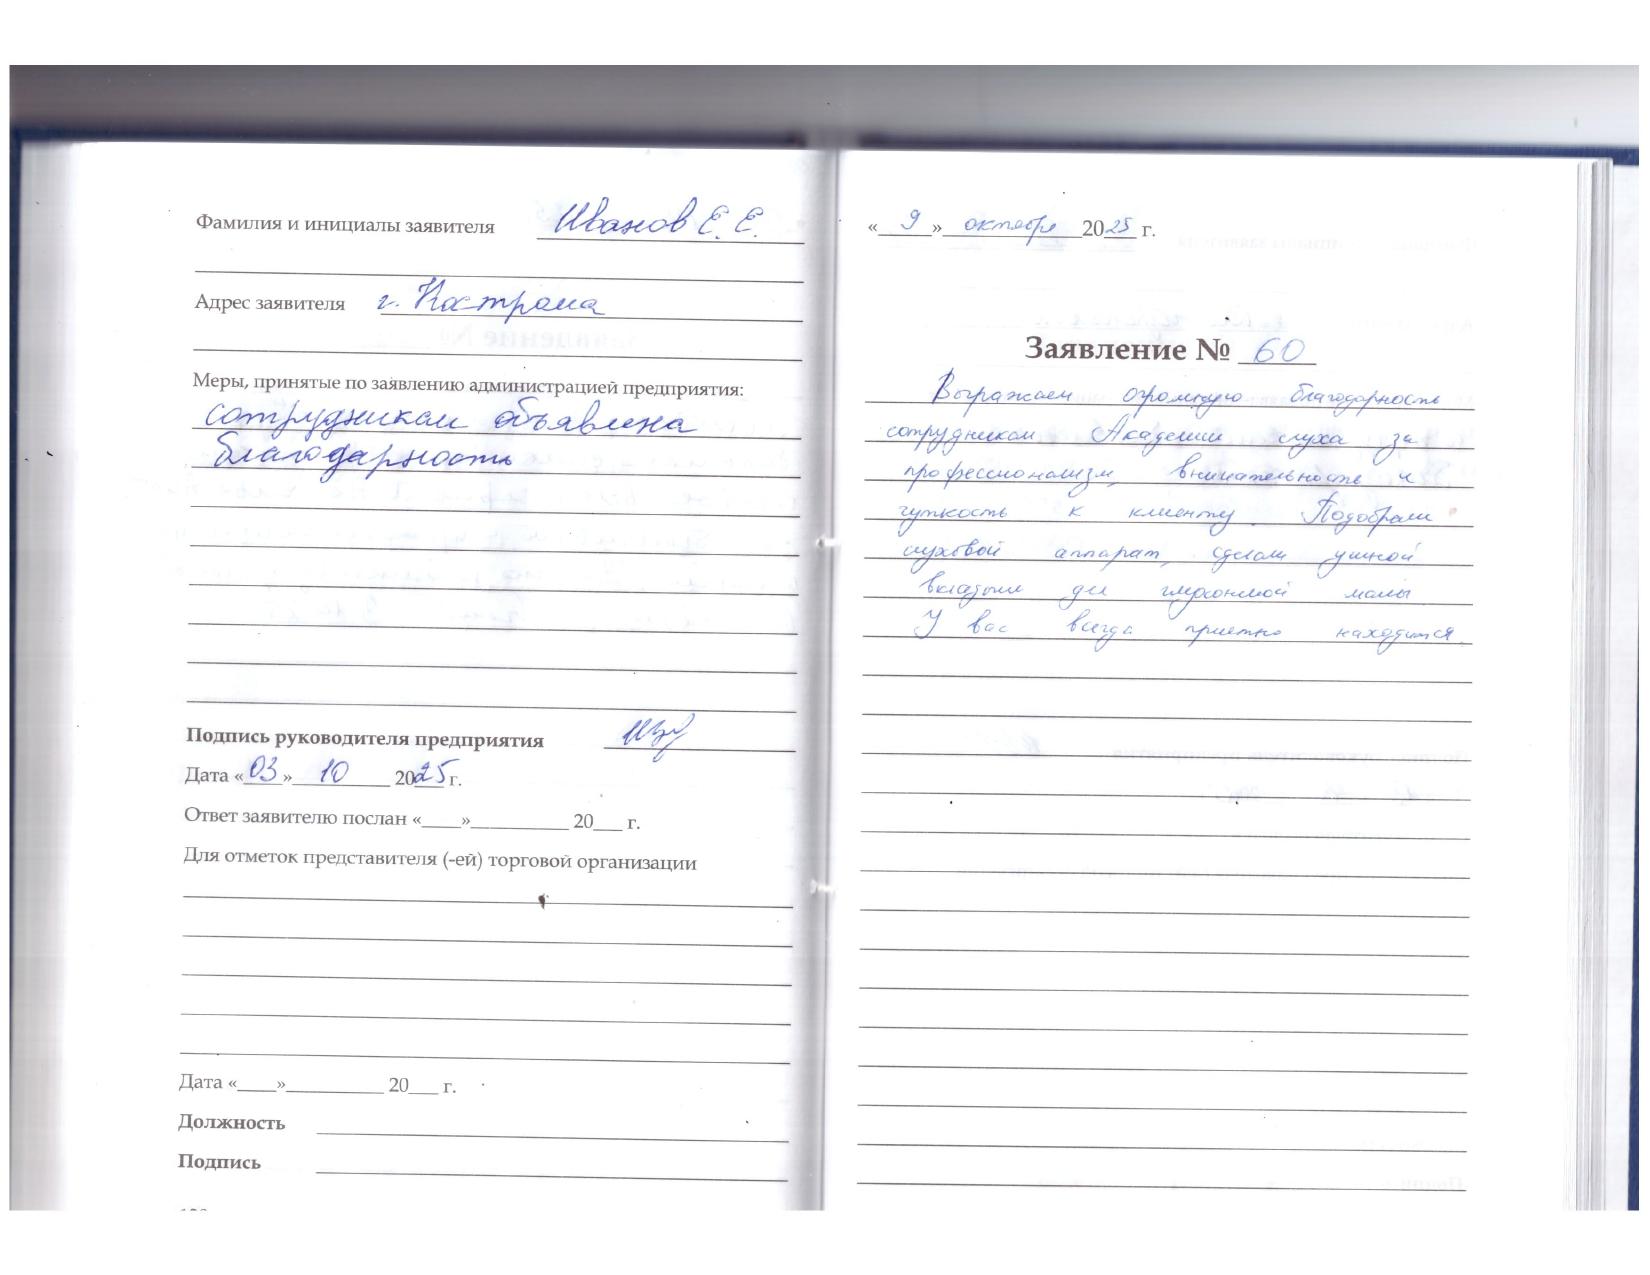 Фамилия и инициалы заявителя Иванов Е. Е.
Адрес заявителя г. Кострома
Меры, принятые по заявлению администрацией предприятия:
сотрудникам объявлена
благодарность
Подпись руководителя предприятия
Дата «03» 10 2025 г.
Ответ заявителю послан «____»__________ 20___ г.
Для отметок представителя (-ей) торговой организации
Дата «____»__________ 20___ г.
Должность
Подпись
«9» октября 2025 г.
Заявление № 60
Выражаем огромную благодарность
сотрудникам Академии слуха за
профессионализм, внимательность и
чуткость к клиенту. Подобрали
слуховой аппарат, сделали ушной
вкладыш для глухонемой мамы
У вас всегда приятно находится.